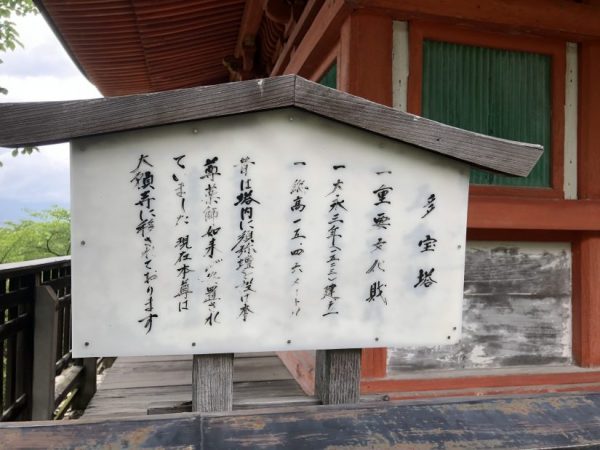 多宝塔
一 重要文化財
一 大永三年(一五二三)建立
一 総高一五.四六メートル
昔は塔内に須弥壇を設け本
尊薬師如来が安置され
ていました 現在本尊は
大願寺に移されております